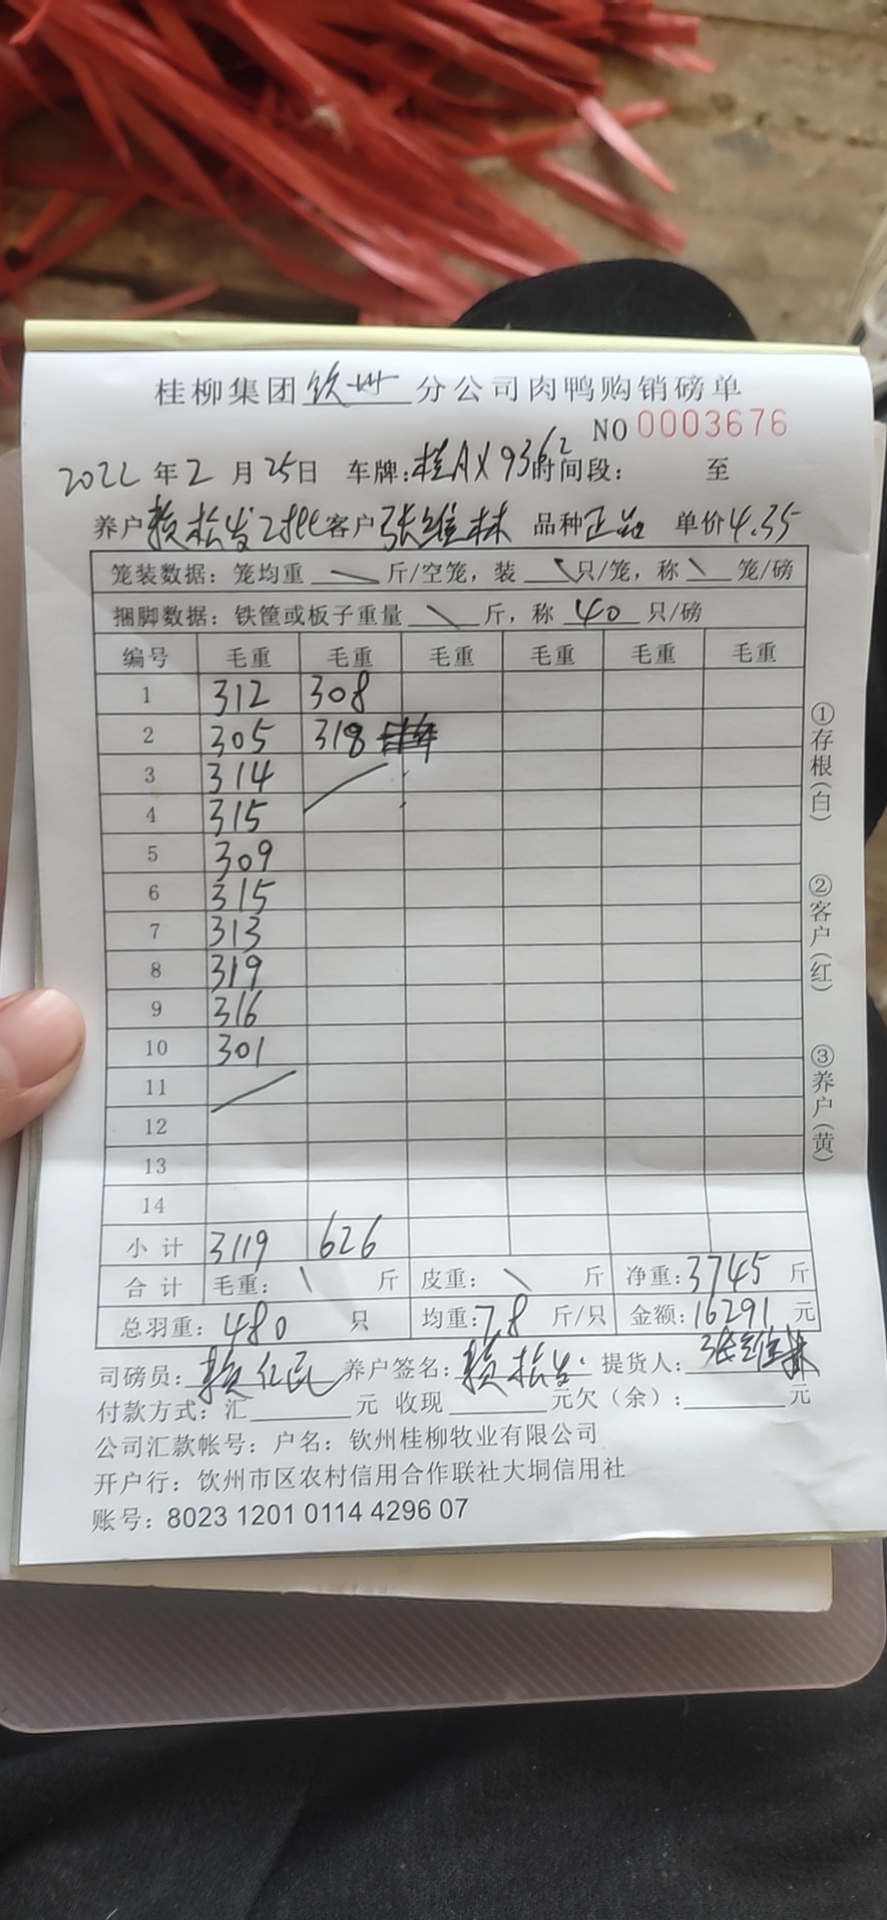 桂柳集团钦州分公司肉鸭购销磅单
NO 0003676
2022年2月25日 车牌:桂AX9362时间段: 至
养户赖松发2批客户张维林 品种正品 单价4.35
笼装数据: 笼均重\斤/空笼, 装\只/笼, 称\笼/磅
捆脚数据: 铁筐或板子重量\斤, 称40只/磅
编号 毛重 毛重 毛重 毛重 毛重 毛重
1 312 308
2 305 318
3 314
4 315
5 309
6 315
7 313
8 319
9 316
10 301
11
12
13
14
小计 3119 626
合计 毛重: \ 斤 皮重: \ 斤 净重:3745斤
总羽重: 480 只 均重:7.8斤/只 金额:16291元
司磅员: 赖仁民 养户签名: 赖松发 提货人: 张维林
付款方式: 汇 元 收现 元欠(余): 元
公司汇款帐号: 户名: 钦州桂柳牧业有限公司
开户行: 钦州市区农村信用合作联社大垌信用社
账号: 8023 1201 0114 4296 07
①存根(白)
②客户(红)
③养户(黄)